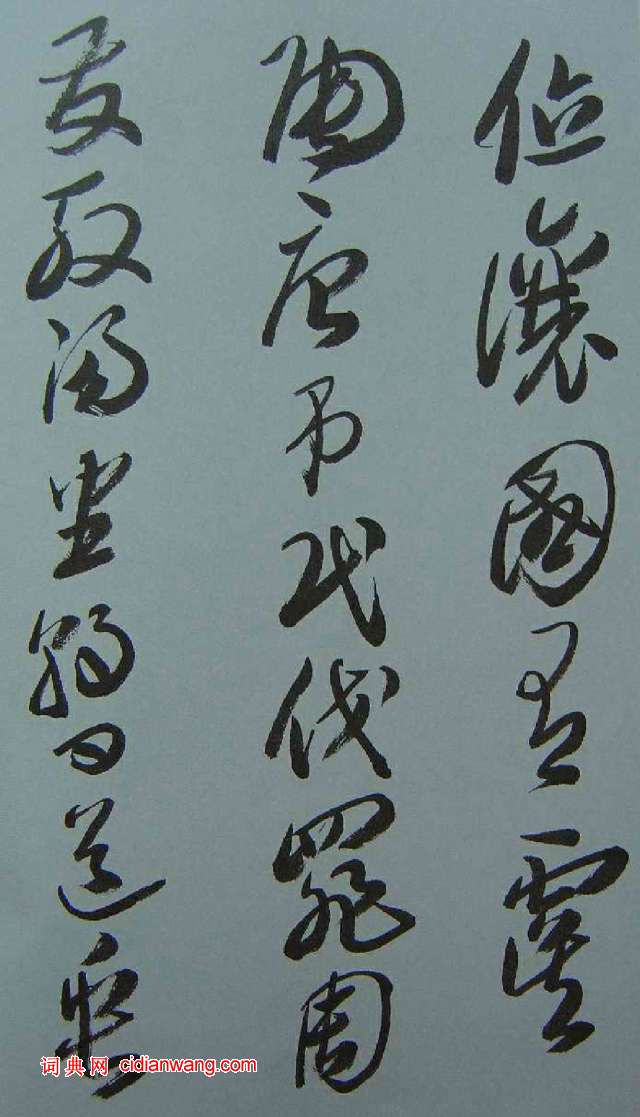 位讓國有虞
陶唐弔民伐罪周
發殷湯坐朝問道垂
词典网 cidianwang.com